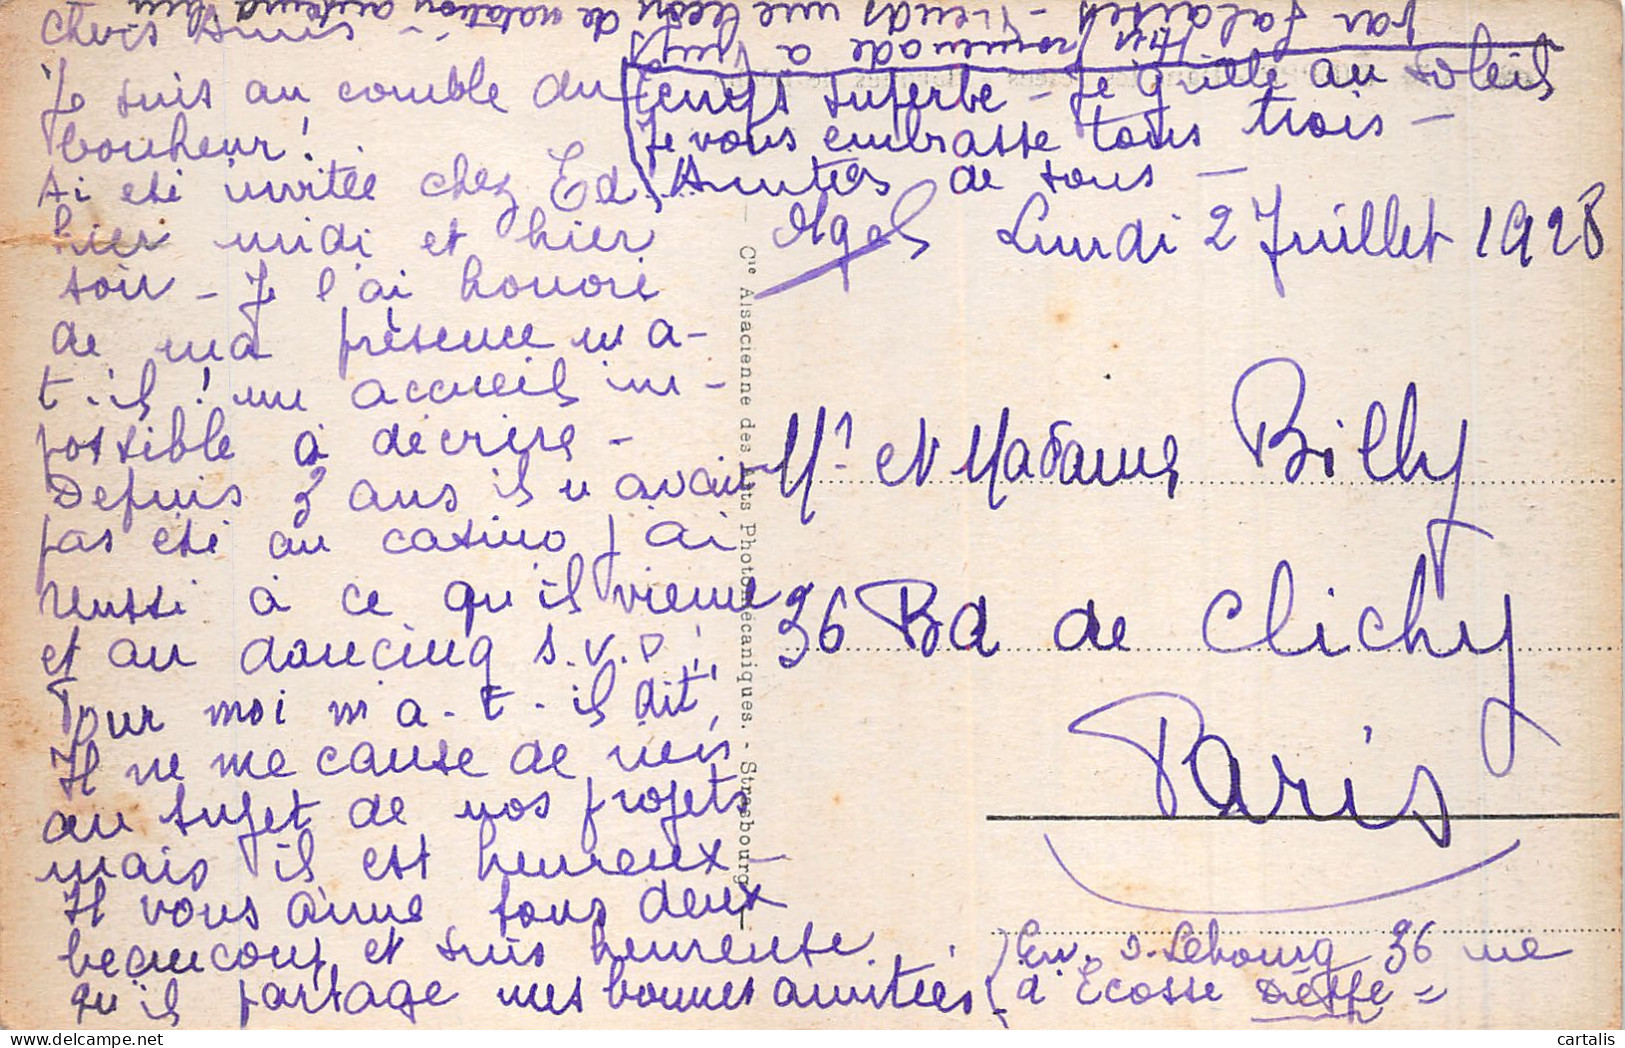 Chers Amis
Je suis au comble du
bonheur!
Ai été invitée chez Ed
hier midi et hier
soir - Je l'ai honoré
de ma présence m'a-
t-il! un accueil im-
possible à décrire -
Depuis 3 ans il n'avait
pas été au casino j'ai
réussi à ce qu'il vienne
et au dancing s.v.p.
Pour moi m'a-t-il dit,
Il ne me cause de rien
au sujet de nos projets
mais il est heureux -
Il vous aime tous deux
beaucoup et suis heureuse
qu'il partage mes bonnes amitiés
par falaises
promenade à
Viens une leçon de natation
temps superbe - Je grille au soleil
Je vous embrasse tous trois -
Amitiés de tous -
Lundi 2 Juillet 1928
Mr et Madame Billy
36 Bd de Clichy
Paris
Env. Lebourg 36 rue
d'Ecosse Dieppe
Cie Alsacienne des Arts Photomécaniques. - Strasbourg
cartalis